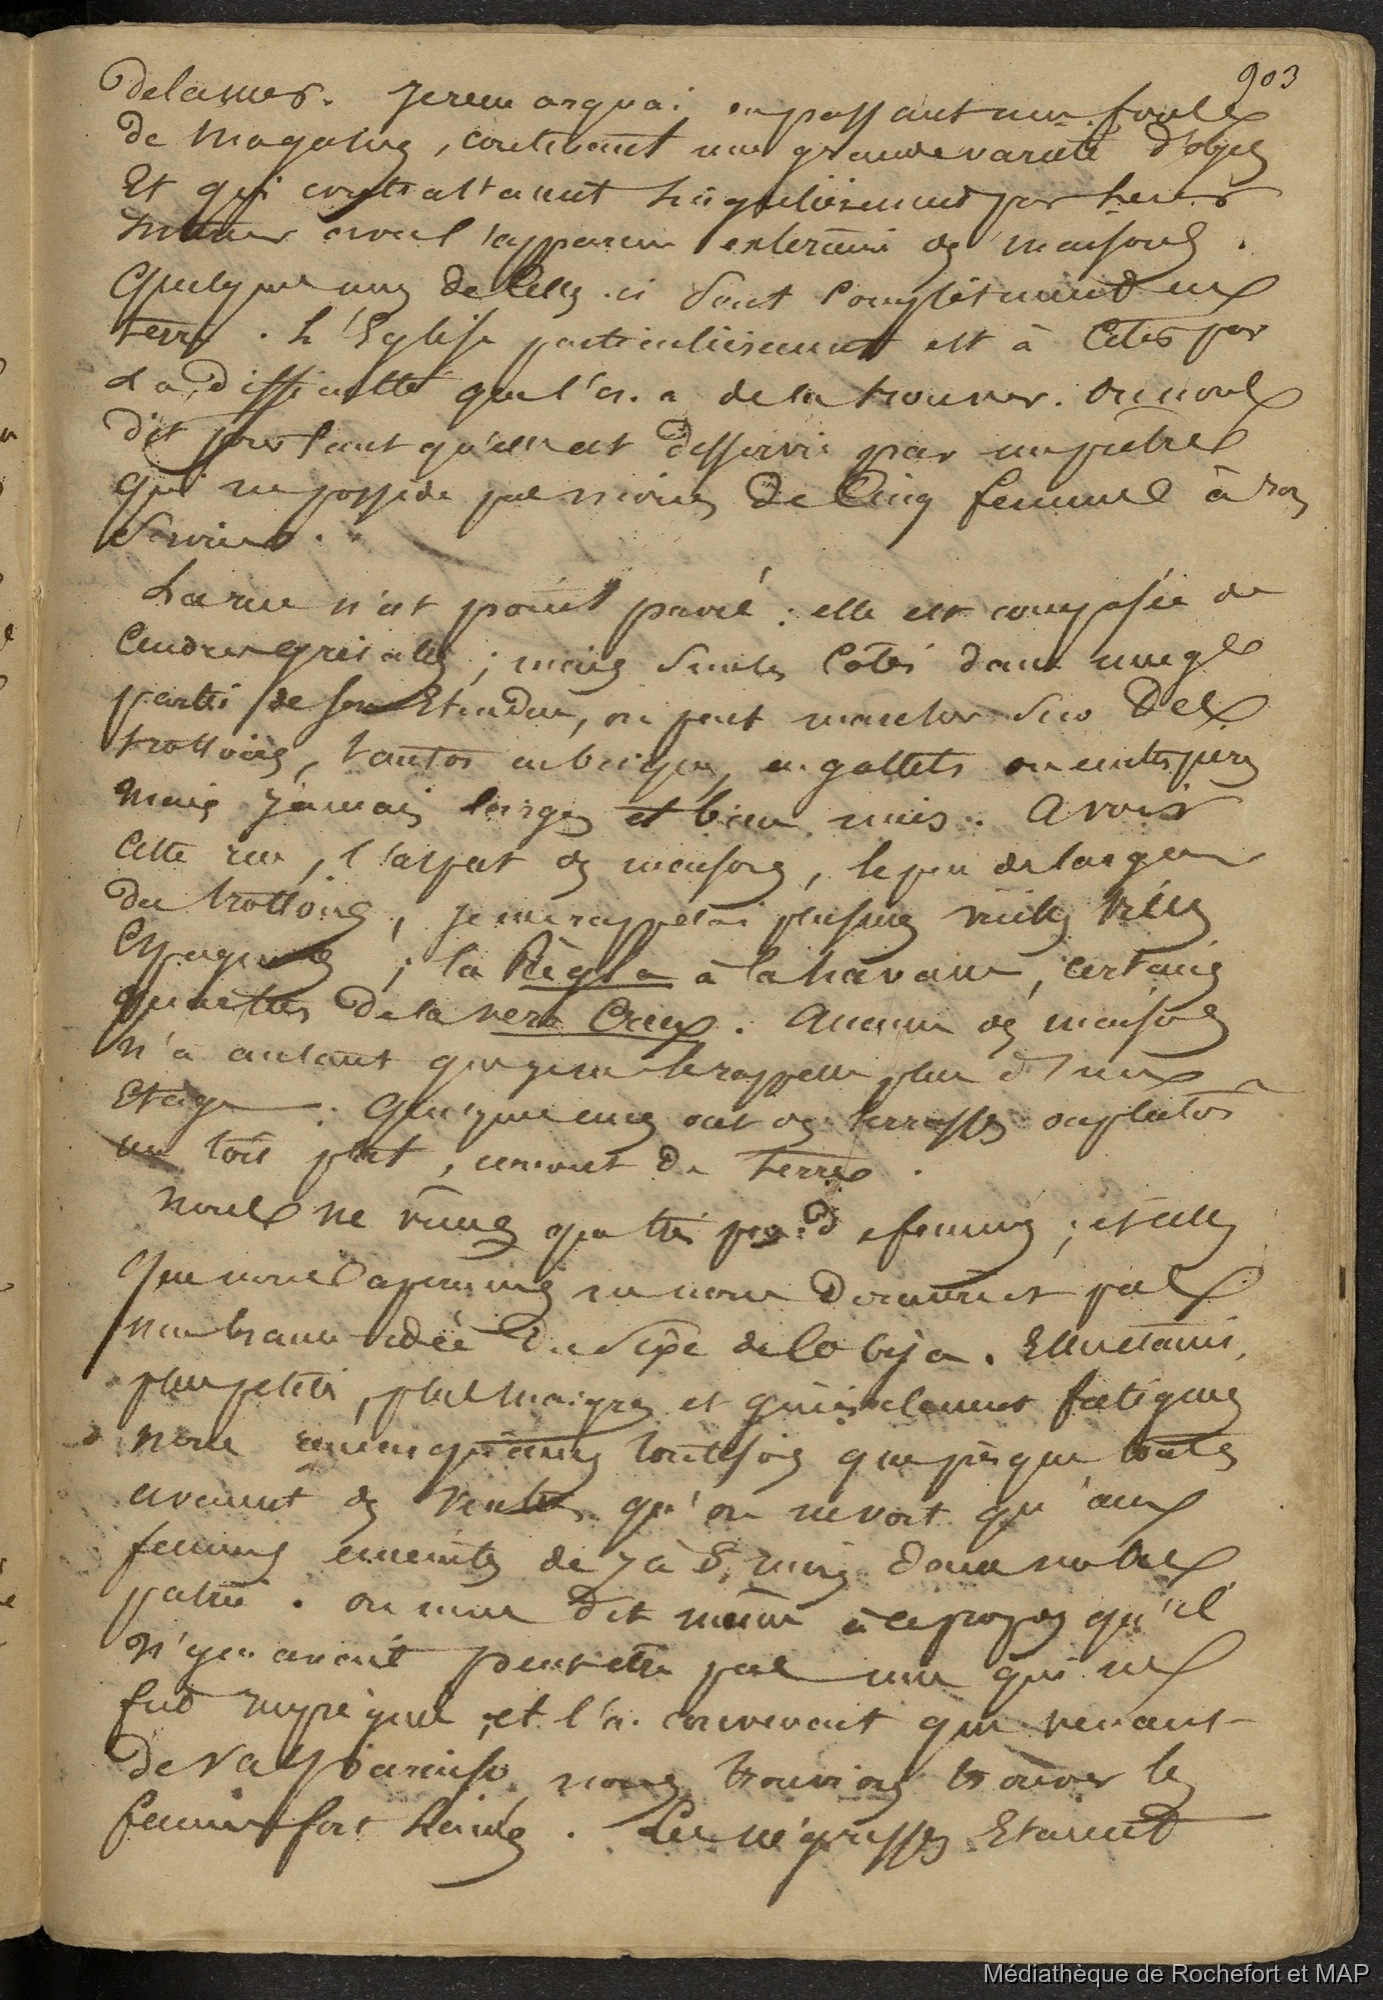 903
de la mer. Je remarquai en passant une foule
de magasins, contenant une grande variété d'objets
Et qui contrastaient singulièrement par leur
avec l'apparence extérieure des maisons.
Quelques unes de celles-ci sont complètement en
terre. L'Eglise particulièrement est à citer par
La difficulté que l'on a de la trouver. On nous
dit pourtant qu'elle est desservie par un prêtre
qui ne possède pas moins de Cinq femmes à son
Service.
La rue n'est point pavée : elle est composée de
Cendres grisatres ; mais sur les côtés dans une gde
partie de son Etendue, on peut marcher sur des
trottoirs, tantôt en briques, en gallets ou en pierres
mais jamais larges et bien unis. A voir
Cette rue, l'aspect des maisons, le peu de largeur
des trottoirs, je me rappelai plusieurs vieilles villes
Espagnoles ; la Règla à la havane, certains
quartiers de la vera Cruz. Aucune des maisons
n'a autant que je me le rappelle plus d'un
Etage. Quelques unes ont des terrasses ou plutôt
un toit plat, couvert de terre.
Nous ne vîmes que très peu de femmes ; et celles
que nous aperçumes ne nous donnèrent pas
une haute idée du Sexe de Cobija. Elles étaient
plus petites, plus maigres et généralement fatiguées
Nous remarquâmes toutefois que presque toutes
avaient des ventres qu'on ne voit qu'aux
femmes enceintes de 7 à 8 mois dans notre
patrie. On nous dit même à ce propos qu'il
n'y en avait peut être pas une qui ne
fut impregnée, et l'on convenait que venant
de Valparaiso, nous trouver les
femmes fort laides. Les négresses Etaient
Médiathèque de Rochefort et MAP